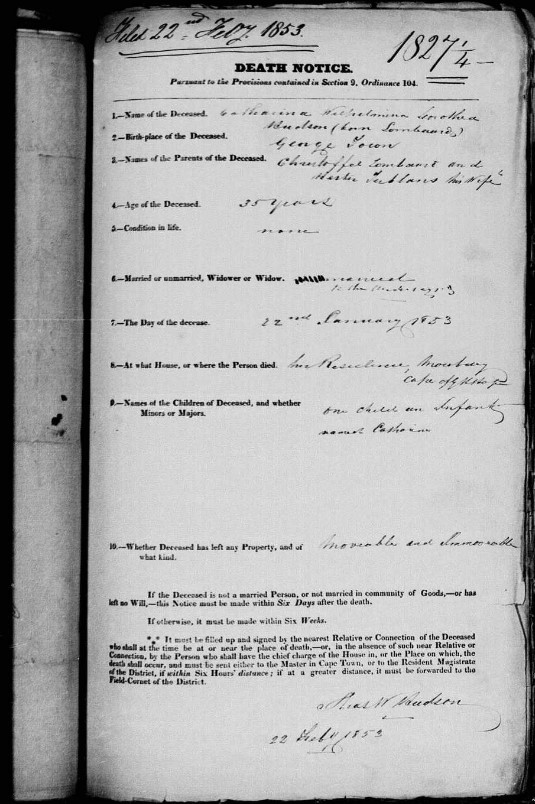 Filed 22nd Feby. 1853.
1827 1/4
DEATH NOTICE.
Pursuant to the Provisions contained in Section 9, Ordinance 104.
1.—Name of the Deceased. Catharina Wilhelmina Dorothea
Hudson (born Lombaard)
2.—Birth-place of the Deceased. George Town
3.—Names of the Parents of the Deceased. Christoffel Lombaart and
Hester his Wife
4.—Age of the Deceased. 35 years
5.—Condition in life. none
6.—Married or unmarried, Widower or Widow. married
to the
7.—The Day of the decease. 22nd January 1853
8.—At what House, or where the Person died. her Residence, Mowbray
Cape of G Hope
9.—Names of the Children of Deceased, and whether
Minors or Majors. one child an Infant
named
10.—Whether Deceased has left any Property, and of
what kind. Moveable and Immoveable
If the Deceased is not a married Person, or not married in community of Goods,—or has
left no Will,—this Notice must be made within Six Days after the death.
If otherwise, it must be made within Six Weeks.
*** It must be filled up and signed by the nearest Relative or Connection of the Deceased
who shall at the time be at or near the place of death,—or, in the absence of such near Relative or
Connection, by the Person who shall have the chief charge of the House in, or the Place on which, the
death shall occur, and must be sent either to the Master in Cape Town, or to the Resident Magistrate
of the District, if within Six Hours' distance; if at a greater distance, it must be forwarded to the
Field-Cornet of the District.
Hudson
22 Feby 1853